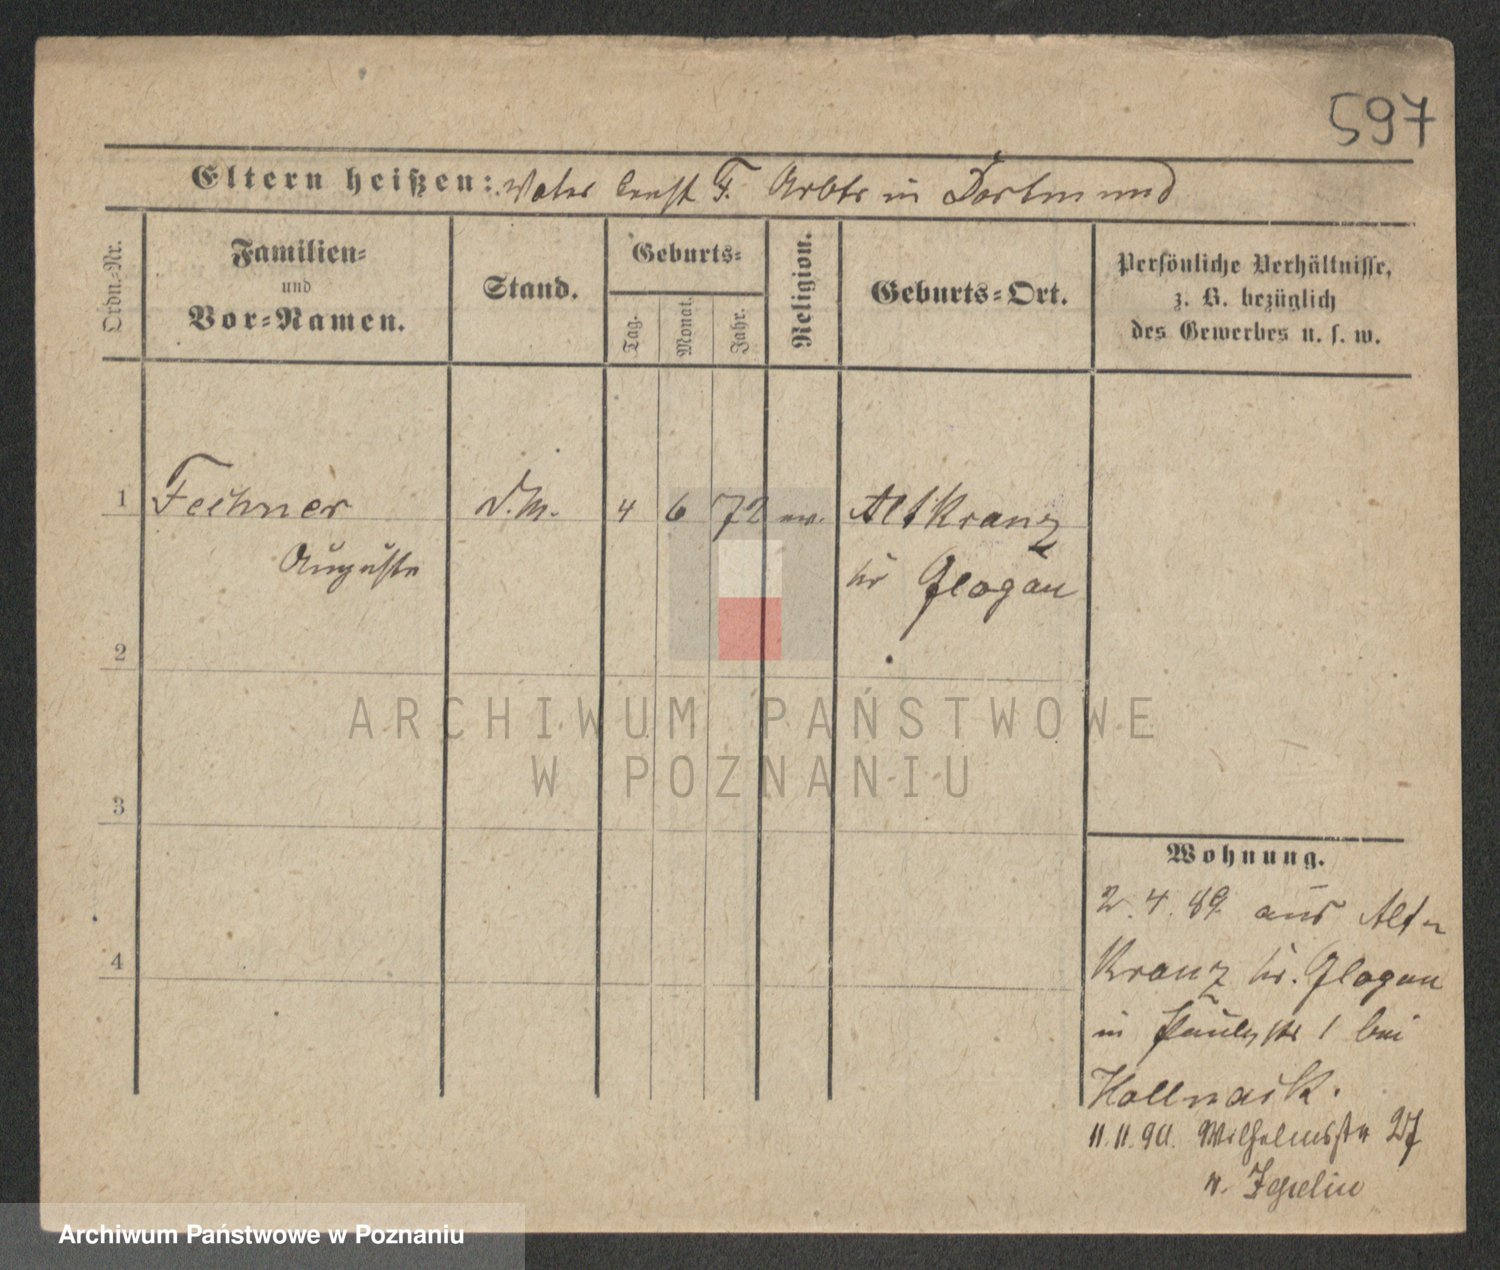 597
Eltern heißen: Vater Ernst F. Arbtr in Dortmund
Ordn.-Nr.
Familien-
und
Vor-Namen.
Stand.
Geburts-
Tag.
Monat.
Jahr.
Religion.
Geburts-Ort.
Persönliche Verhältnisse,
z. B. bezüglich
des Gewerbes u. s. w.
1 Fechner D.M. 4 6 72 ev. Alt Kranz
Auguste Kr Glogau
2
3
4
Wohnung.
2.4.89 aus Alt-
Kranz Kr. Glogau
in Paulystr 1 bei
Hollnack.
11.11.90. Wilhelmstr 27
v. Zepelin
ARCHIWUM PAŃSTWOWE
W POZNANIU
Archiwum Państwowe w Poznaniu